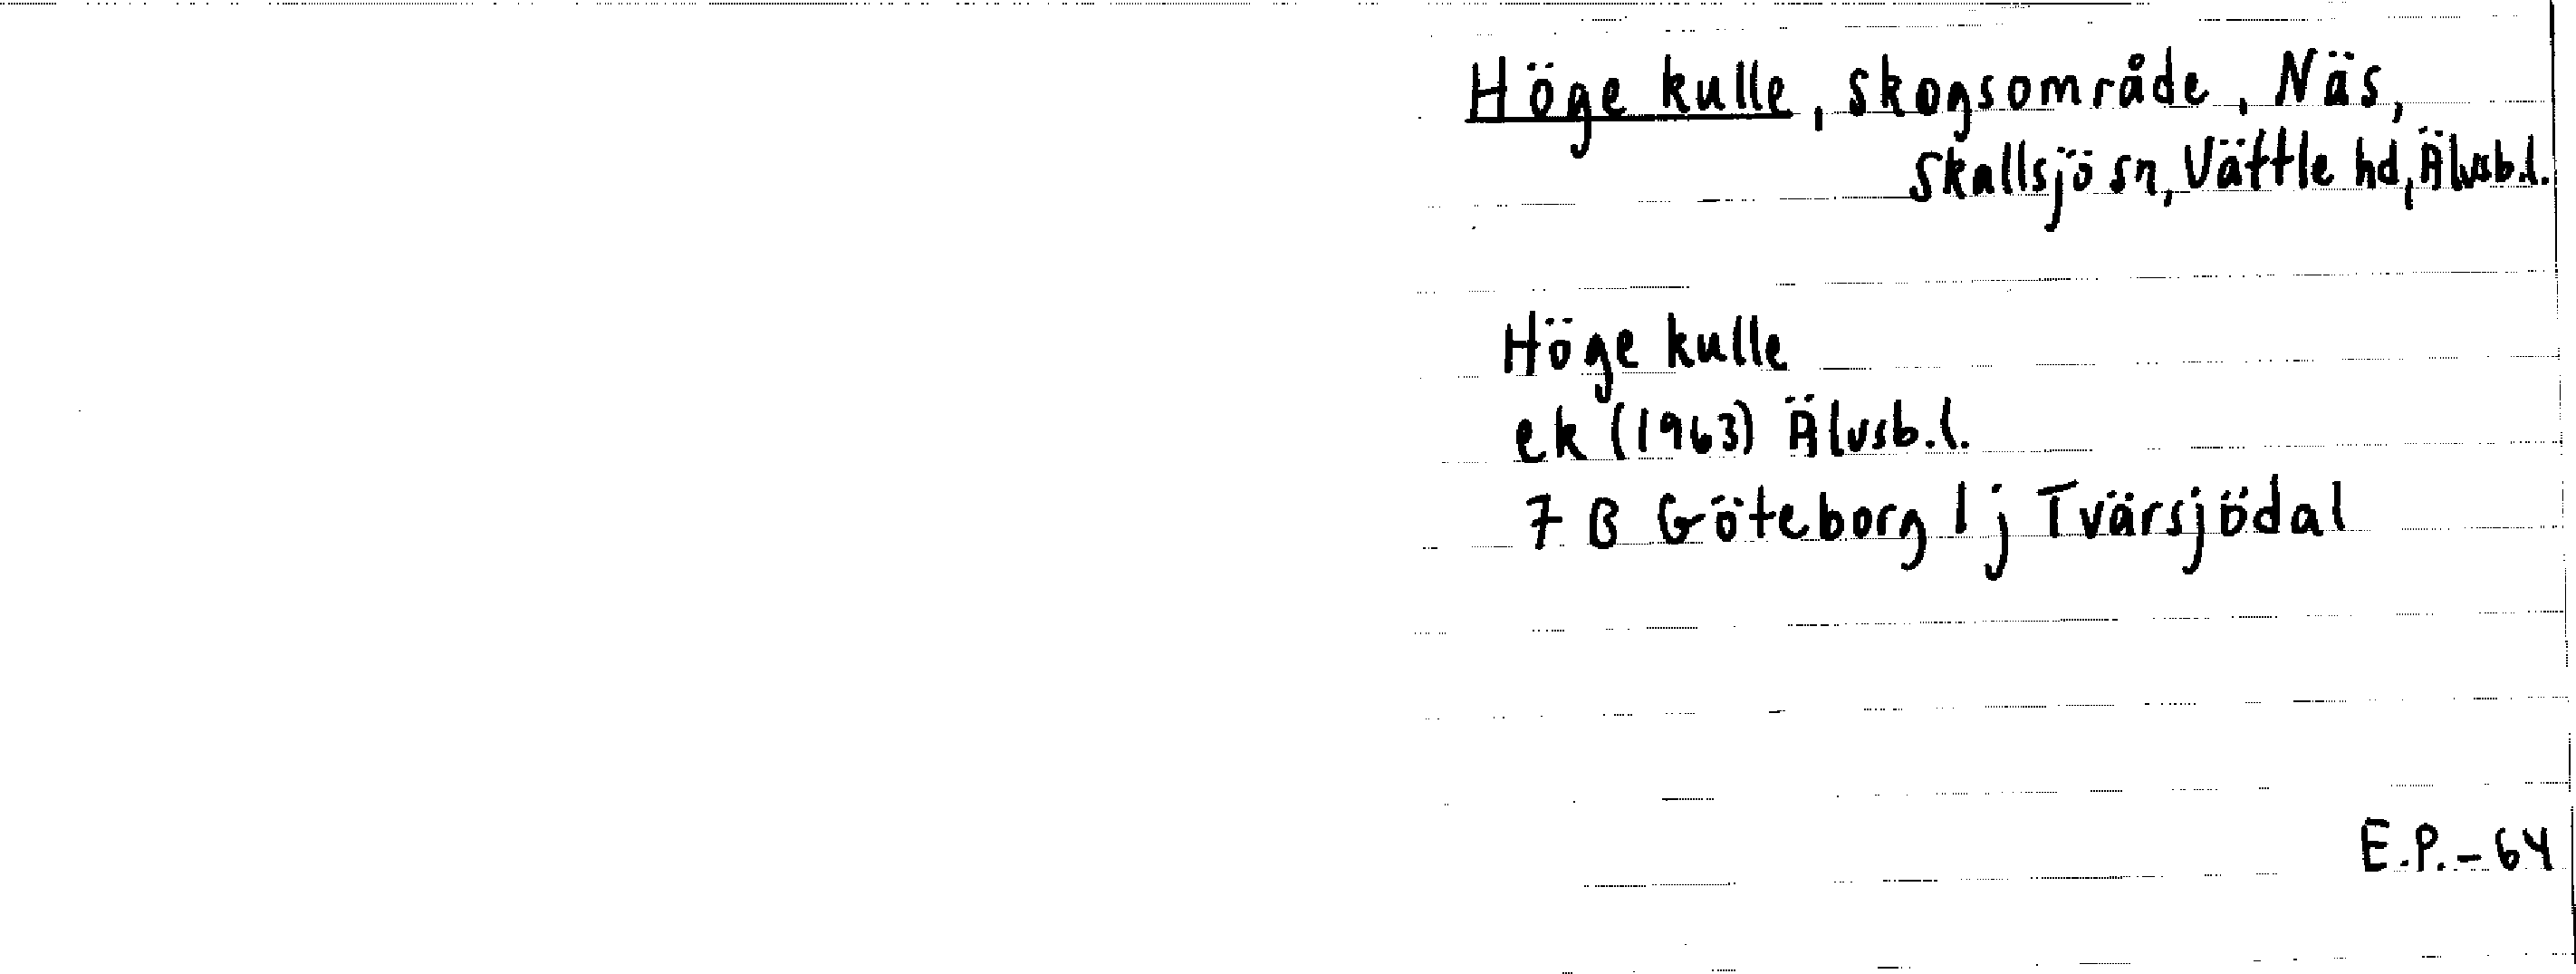 Höge kulle, skogsområde, Näs,
Skallsjö sn, Vättle hd, Älvsb.l.
Höge kulle
ek (1963) Älvsb.l.
7 B Göteborg 1 j Tvärsjödal
E.P.-64